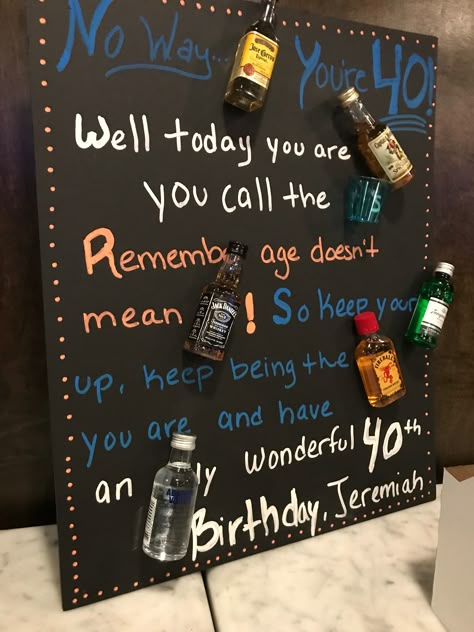 No Way... You're 40!
Jose Cuervo
Well today you are
you call the
Rememb age doesn't
JACK DANIEL'S
mean ! So keep your
FIREBALL
up, keep being the
you are and have
an ly wonderful 40th
Birthday, Jeremiah